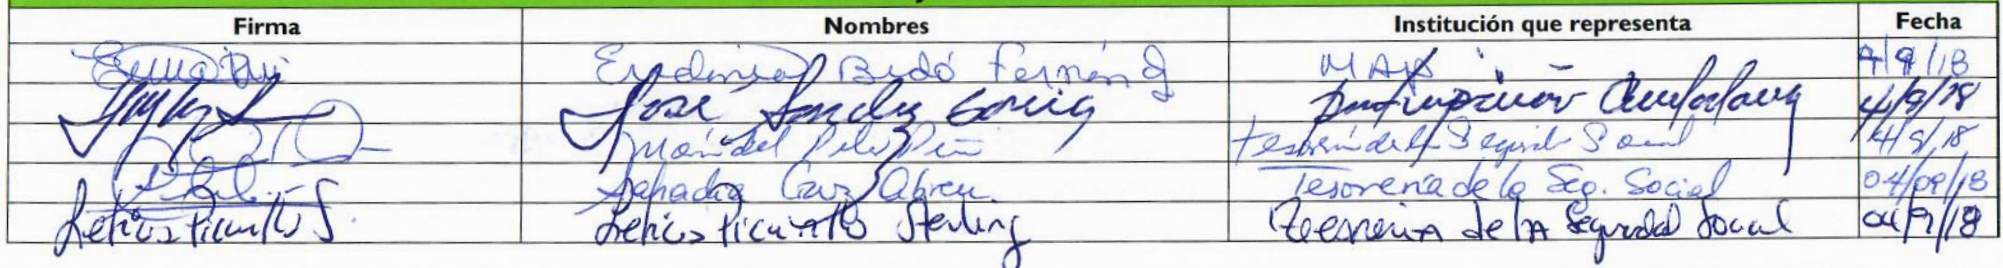 Firma Nombres Institución que representa Fecha
Bidó MAP 4/9/18
José Sander García Participación Ciudadana 4/9/18
María del Pilar Peña Tesorería de la Seguridad Social 4/9/18
Sahadia Cruz Abreu Tesorería de la Seg. Social 04/09/18
Leticia Pichardo S. Leticia Pichardo Sterling Tesoreria de la Seguridad Social 04/9/18